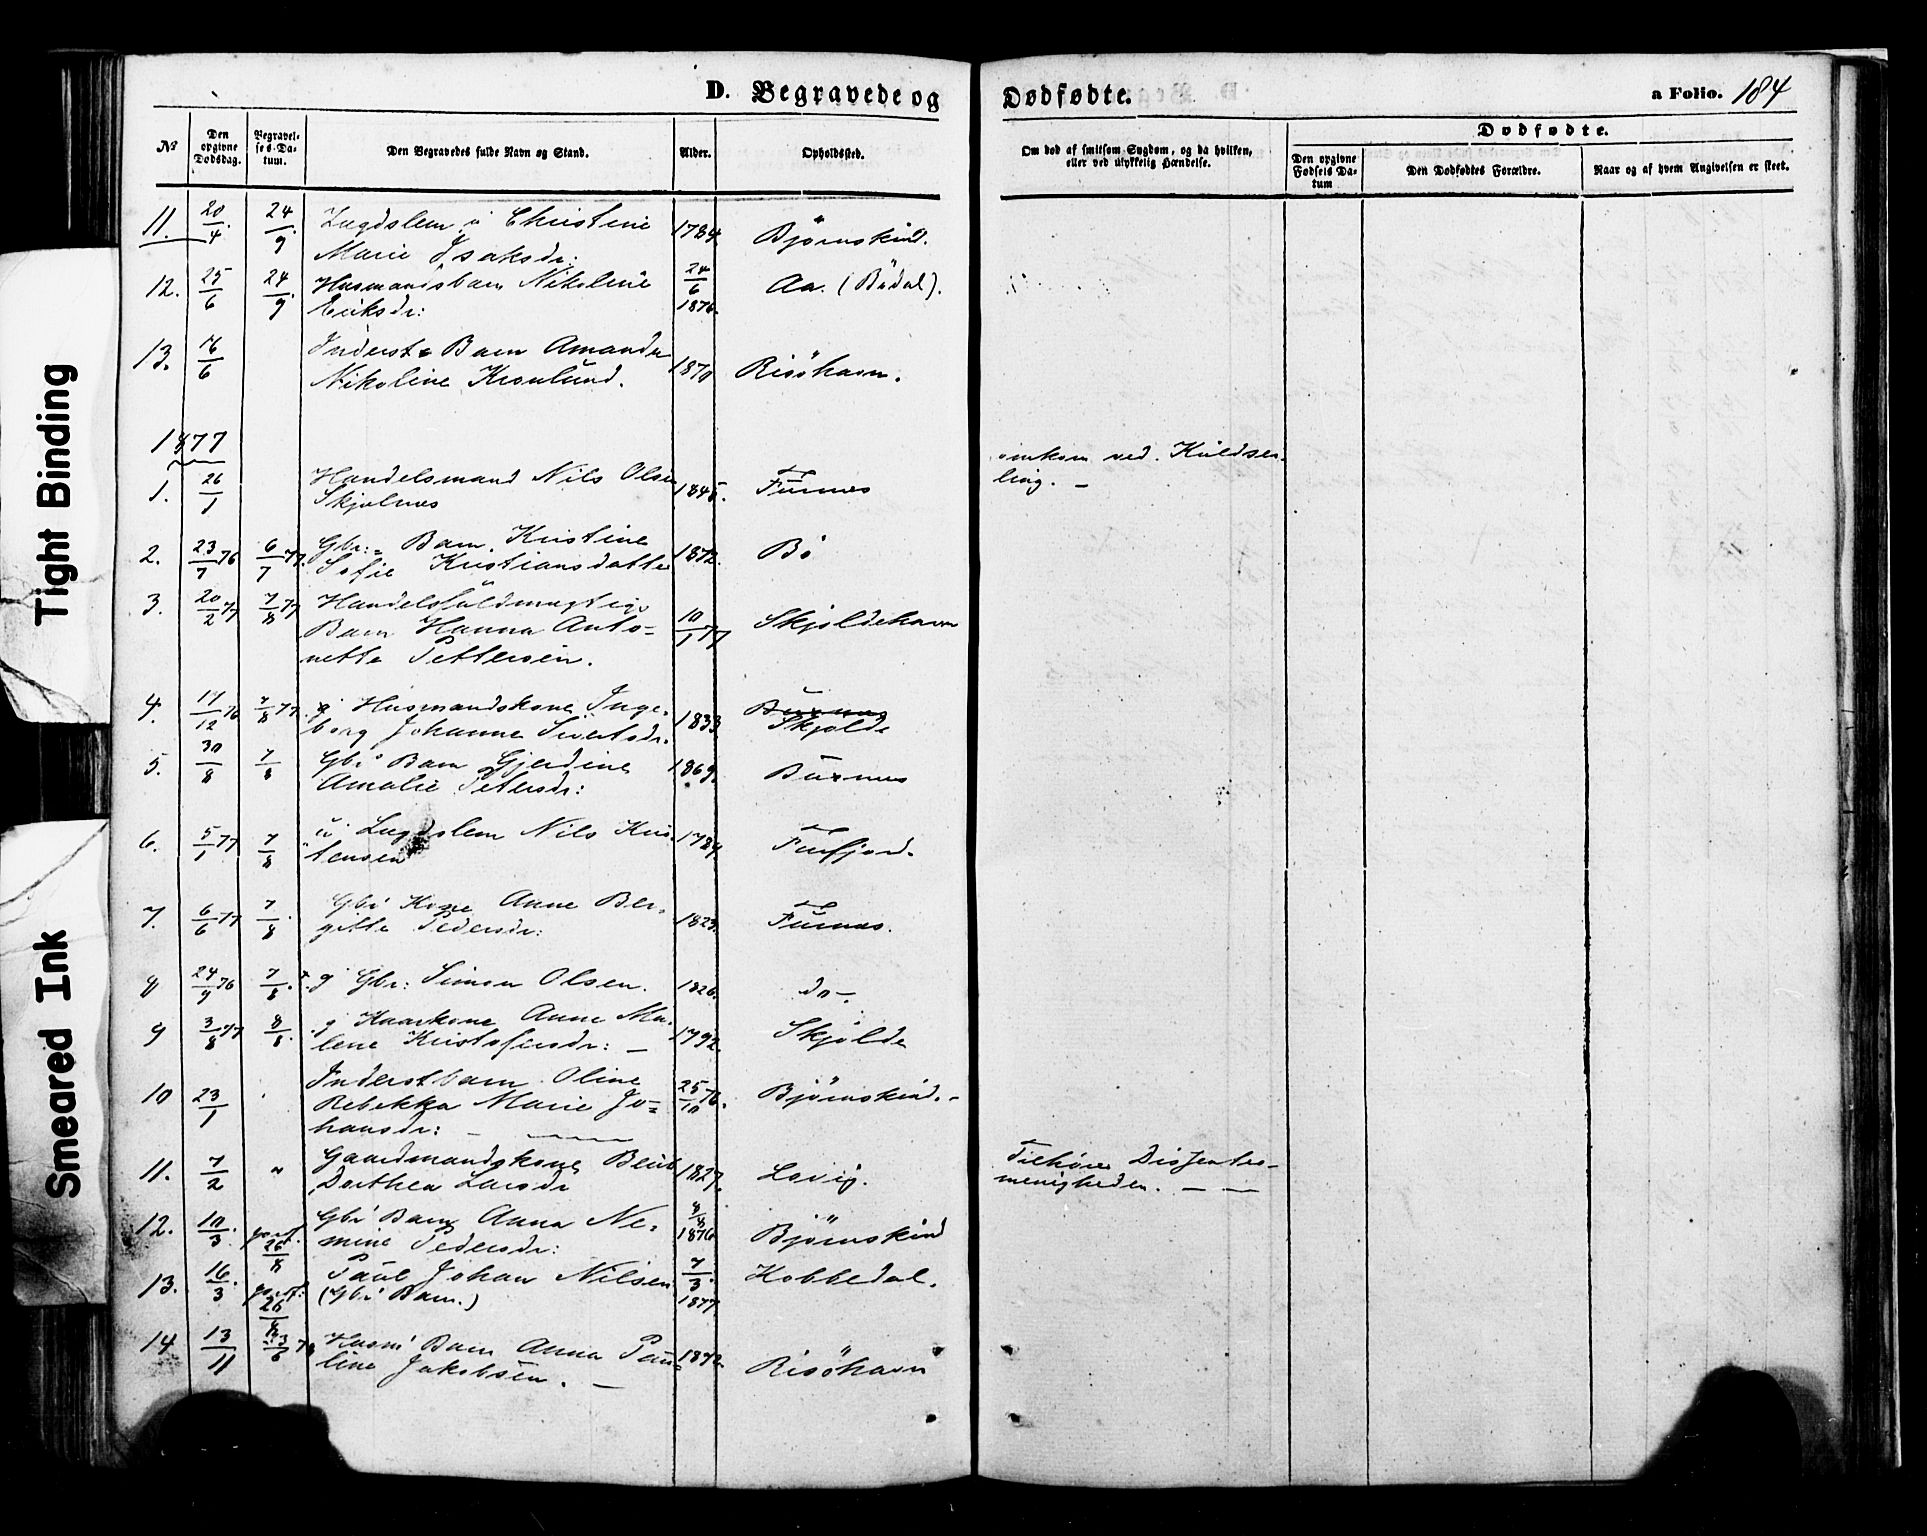 D. Begravede og Dødfødte.
a Folio. 184
No
Den opgivne Dødsdag.
Begravelses-Datum.
Den Begravedes fulde Navn og Stand.
Alder.
Opholdssted.
Om død af smitsom Sygdom, og da hvilken, eller ved ulykkelig Hændelse.
Dødfødte.
Den opgivne Fødsels Datum
Den Dødfødtes Forældre.
Naar og af hvem Angivelsen er skeet.
11. 20/4. 24/9. Lægdslem ú Christine 1784 Bjørnskind.
Marie Isaksdr:
12. 25/6 24/9. Husmandsbarn Nikoline 24/6 1876. Aa. (Bödal).
Eriksdr:
13. /6 Inderst= Barn Amanda 1870 Risöhavn.
Nikoline Kronlund.
1877
1. 26/1 Handelsmand Nils Olsen 1845. Fornes omkom ved Kuldseiling. –
Skjolnes
2. 23/7 76 6/7 77. Gbr:= Barn. Kristine 1872. Bö
Sofie Kristiansdatter
3. 20/2 77 7/8 77 Handelsfuldmægtigs 10/1 77 Skjoldehavn
Barn Hanna Anto=
nette Pettersen.
4. 17/12 76 7/8 77. g Husmandskone Inge- 1833 Buxnes Skjolde
borg Johanne Sivertsdr.
5. 30/8 7/8 Gbr' Barn Gjerdine 1869. Buxnes
Amalie Petersdr:
6. 5/1 77 7/8 ú Lægdslem Nils Kris- 1784 Finfjord.
tensen
7. 6/6 77 7/8. Gbr' Kone Anne Ber- 1823. Fornes.
gitte Pedersdr:
8 24/9 76 7/8. g Gbr: Simon Olsen. 1826. do –.
9 3/8 77 8/8. g Kaarkone Anne Ma- 1792. Skjolde
lene Kristofersdr: –
10 23/1 Inderstbarn Oline 25/10 76. Bjørnskind. –
Rebekka Marie Jo=
hansdr: –
11. 7/2 " Gaardmandskone Berit 1827. Lovig. Tilhører Dissenter-
Dorthea Larsdr menigheden. – –
12. 10/3. 26/8 Gbr' Barn Anna Ne- 1876 Bjørnskind
mine Pedersdr:
13. 16/3. 26/8 Paul Johan Nilsen 7/3. 1877 Kobbedal.
(Gbr' Barn.)
14 13/11 Husm' Barn Anna Pau- 1872. Risöhavn
line Jakobsen. –
Tight Binding
Smeared Ink